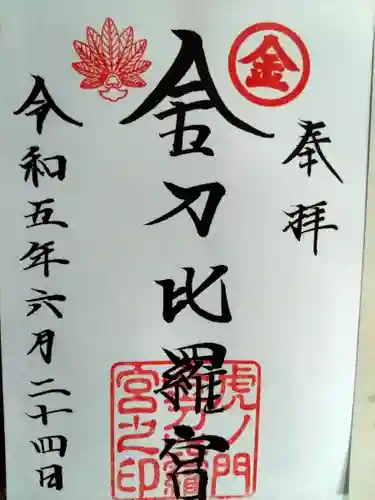 金
奉拝
金刀比羅宮
令和五年六月二十四日
虎ノ門
宮之印